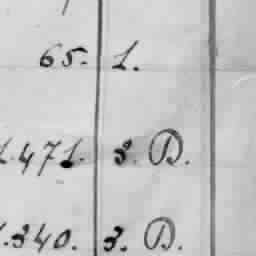 65. 1.
1.471. 3. D.
1.340. 3. D.